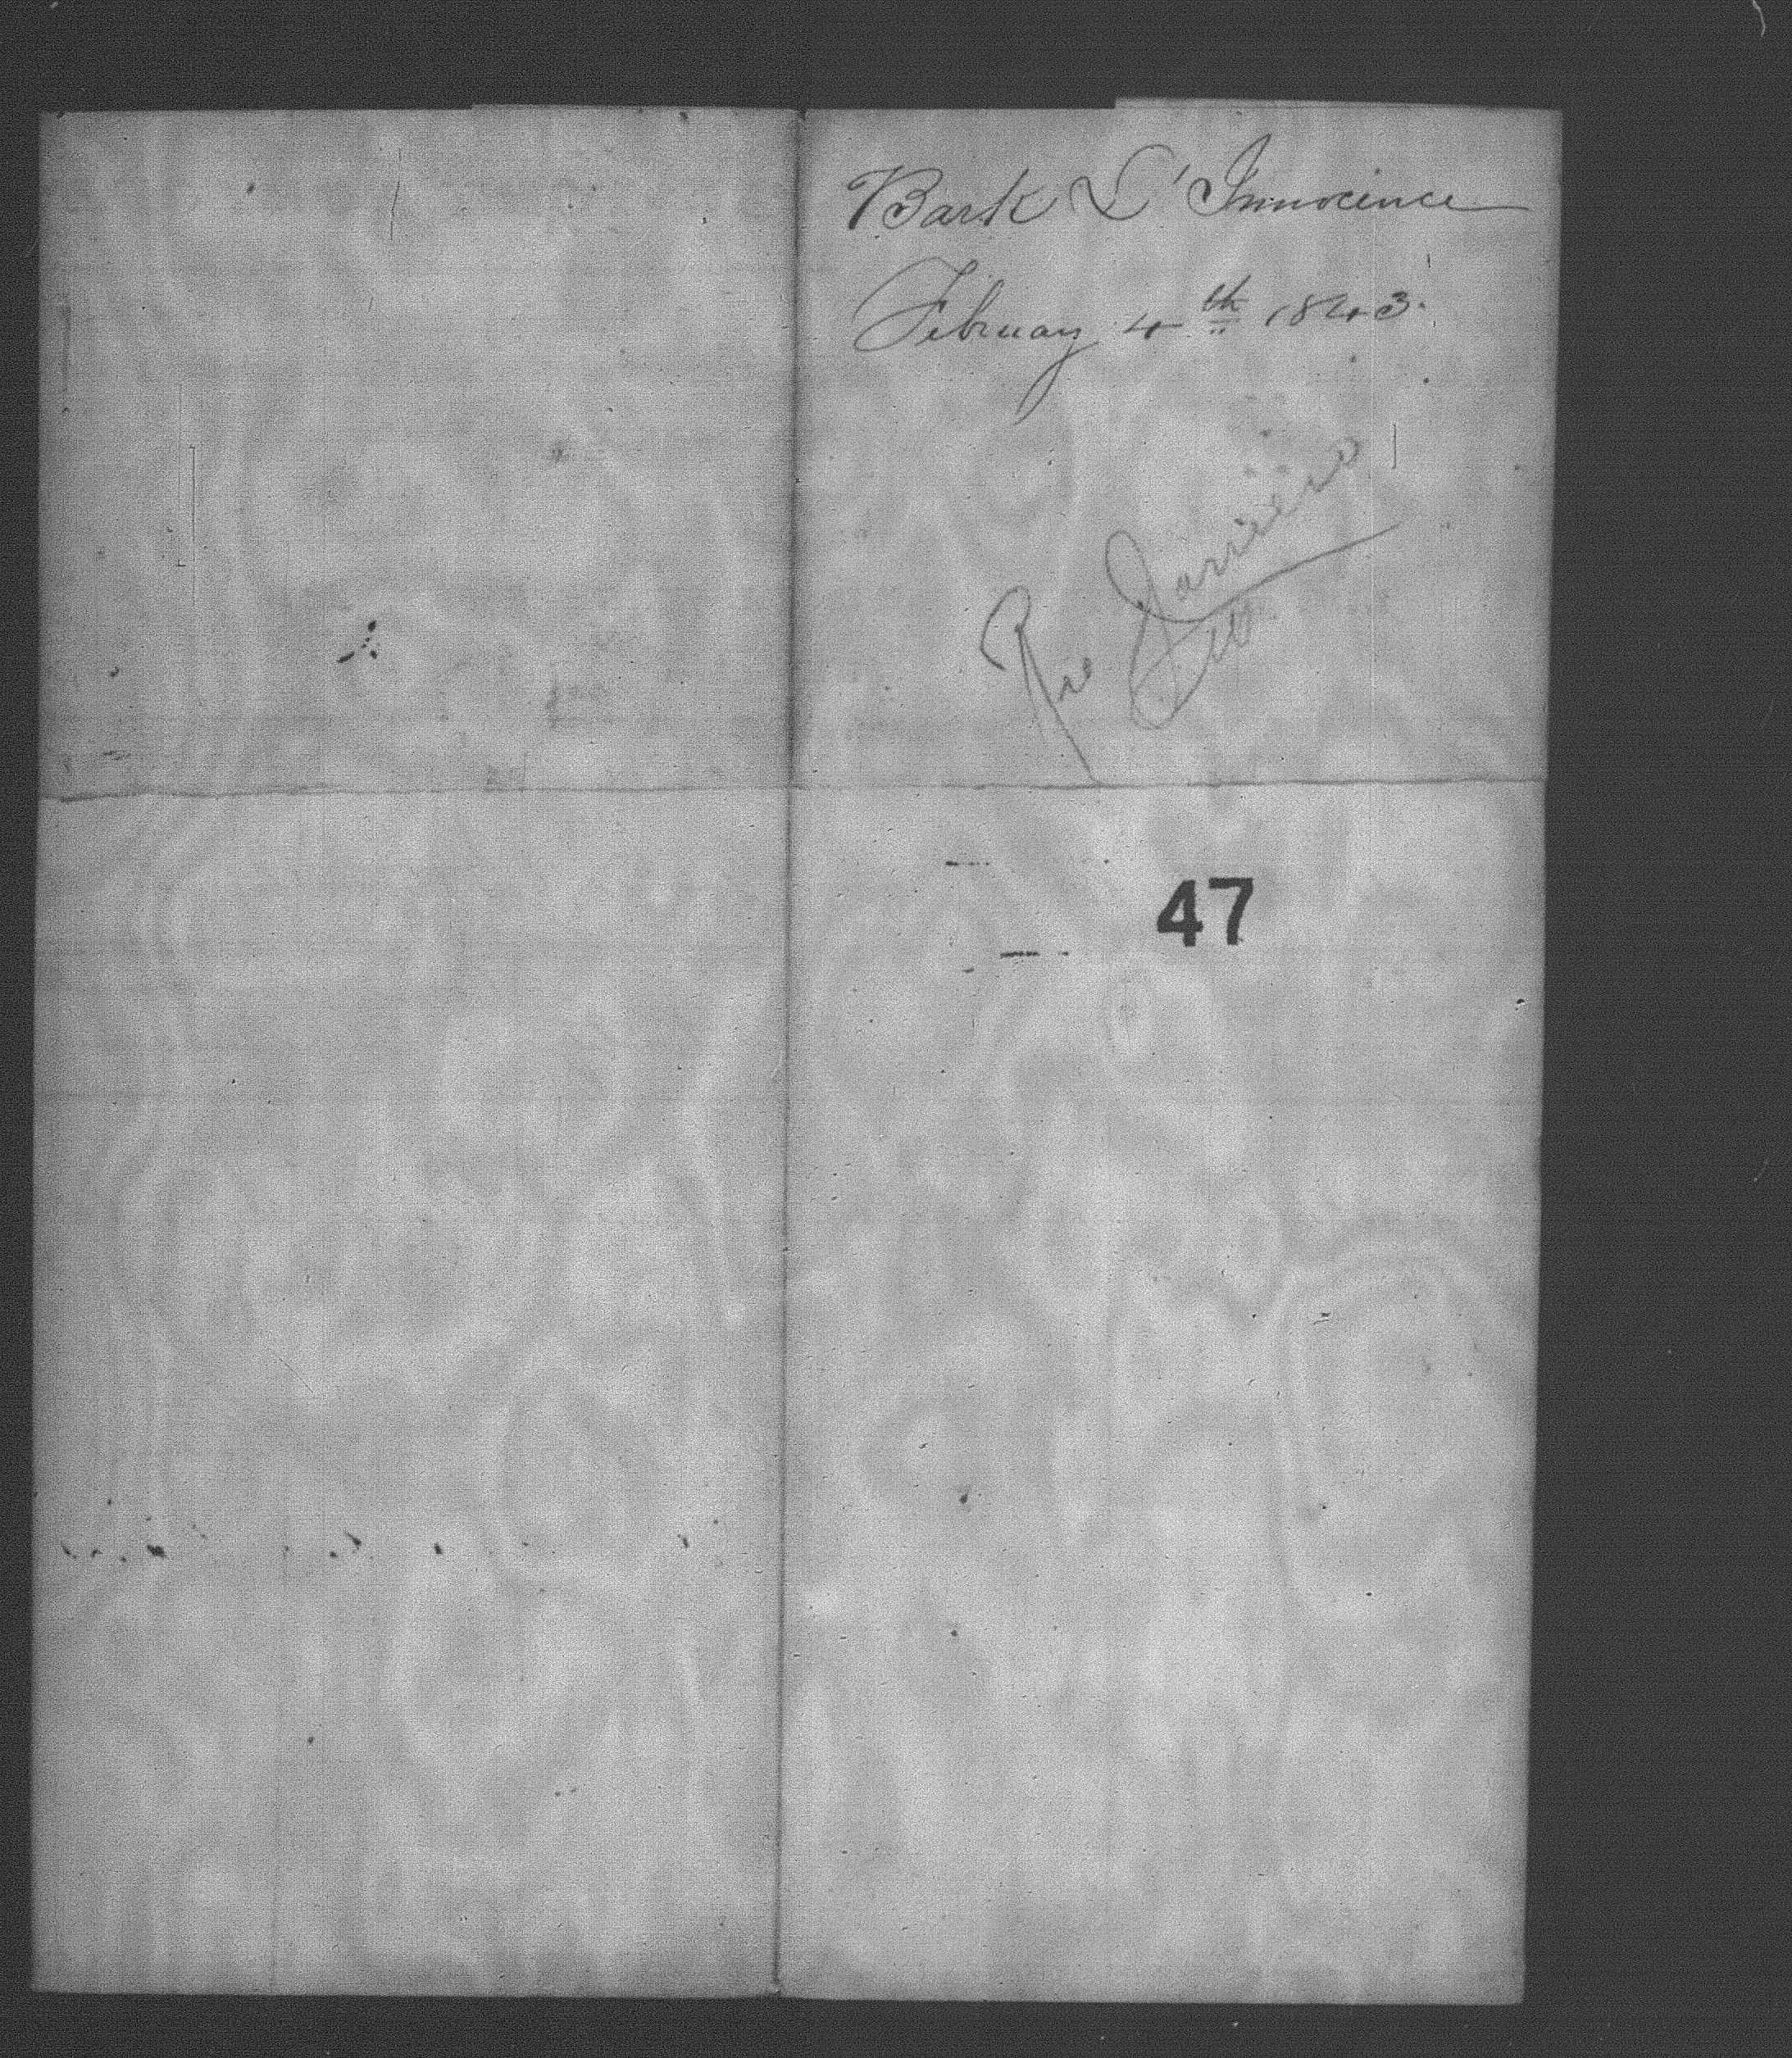 Bark L'Innocence
February 4th 1843.
Rio Janeiero
47